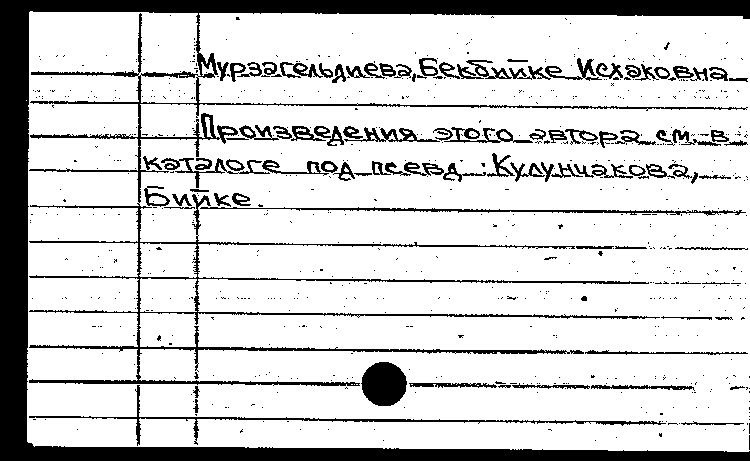 Мурзагельдиева, Бекбийке Исхаковна
Произведения этого автора см. в
каталоге под псевд.: Кулунчакова,
Бийке.